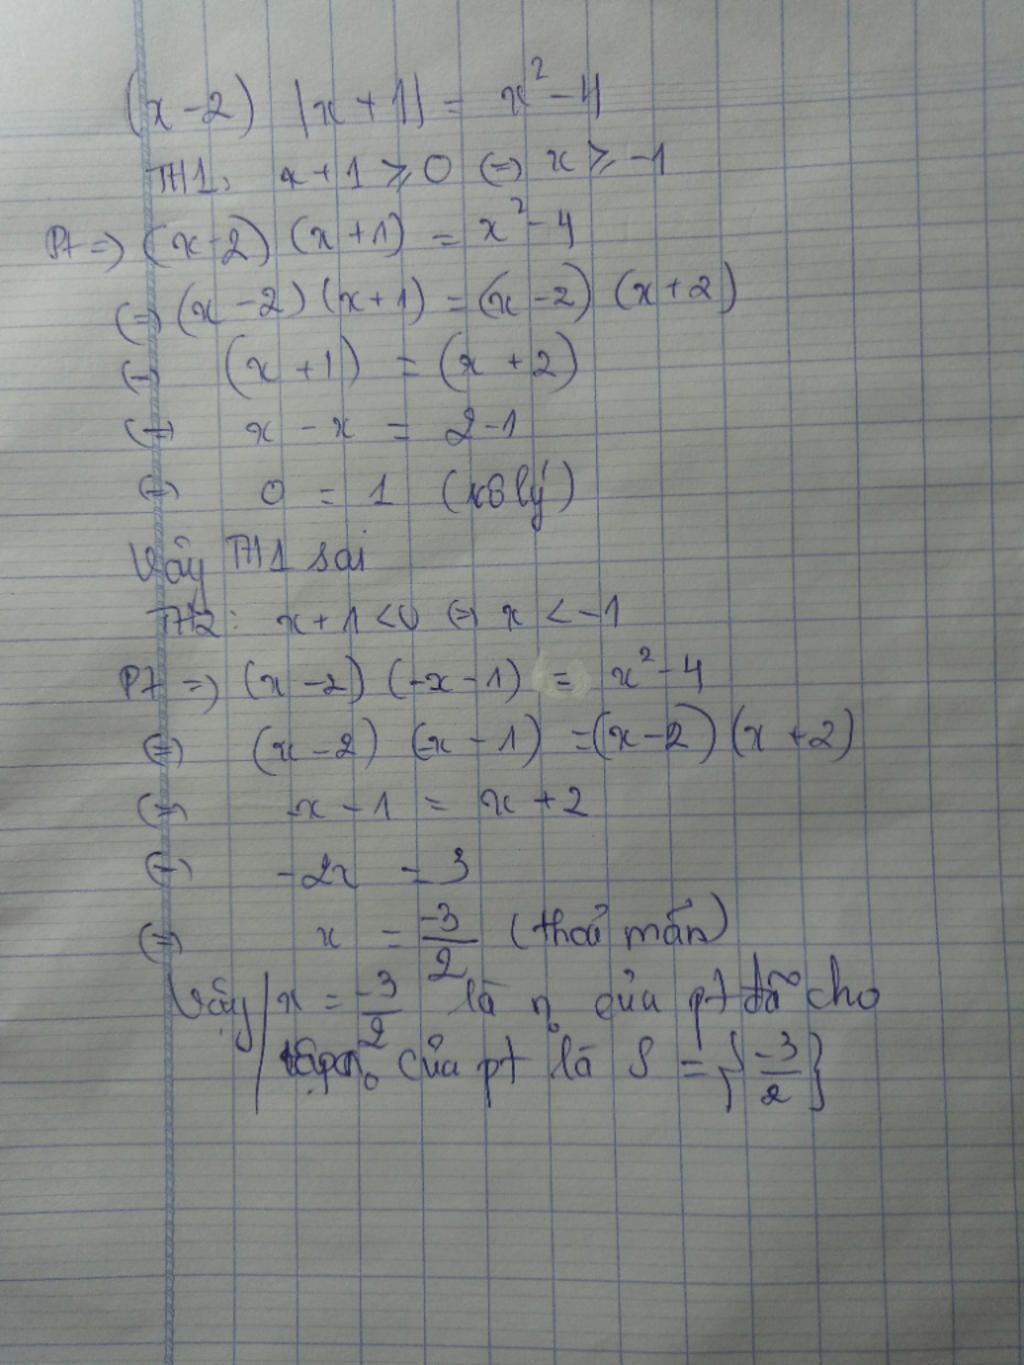 (x-2) |x+1| = x² - 4
TH1: x+1 ≥ 0 (=) x ≥ -1
Pt =) (x-2) (x+1) = x² - 4
(=) (x-2) (x+1) = (x-2) (x+2)
(=) (x+1) = (x+2)
(=) x - x = 2-1
(=) 0 = 1 (vô lý)
Vậy TH1 sai
TH2: x+1 <0 (=) x < -1
Pt =) (x-2) (-x-1) = x² - 4
(=) (x-2) (-x-1) = (x-2) (x+2)
(=) -x - 1 = x + 2
(=) -2x = 3
(=) x = -3/2 (thoả mãn)
Vậy x = -3/2 là n₀ của pt đã cho
tập n₀ của pt là S = {-3/2}